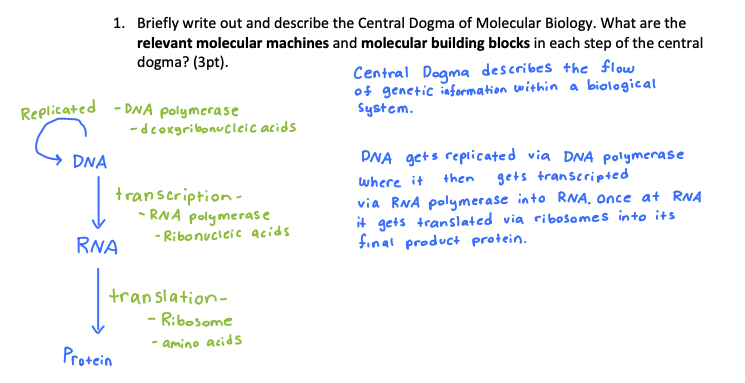 1. Briefly write out and describe the Central Dogma of Molecular Biology. What are the
relevant molecular machines and molecular building blocks in each step of the central
dogma? (3pt).
Central Dogma describes the flow
of genetic information within a biological
system.
Replicated
- DNA polymerase
- deoxyribonucleic acids
DNA
transcription -
- RNA polymerase
- Ribonucleic acids
RNA
translation -
- Ribosome
- amino acids
Protein
DNA gets replicated via DNA polymerase
where it then gets transcripted
via RNA polymerase into RNA. once at RNA
it gets translated via ribosomes into its
final product protein.